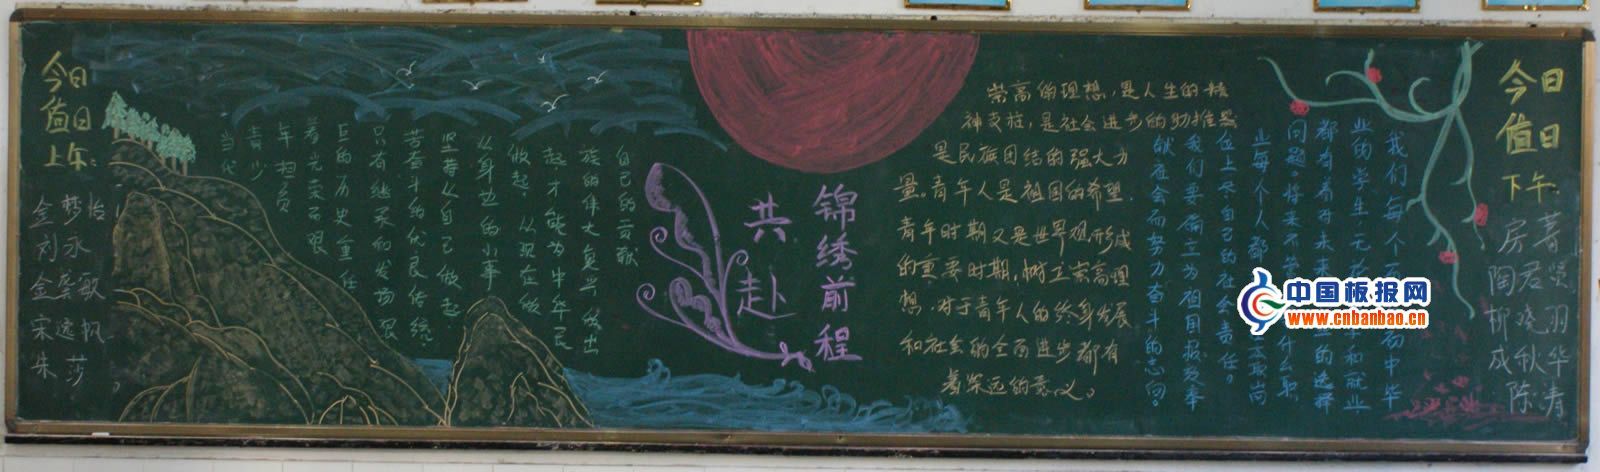 今日
值日
上午:
金梦怡
刘永
金龚敏
宋远帆
朱莎
当代
青少
年担负
着光荣而艰
巨的历史重任
只有继承和发扬艰
苦奋斗的优良传统
坚持从自己做起
从身边的小事
做起,从现在做
起,才能为中华民
族的伟大复兴做出
自己的贡献
共赴
锦绣前程
崇高的理想,是人生的精
神支柱,是社会进步的助推器
是民族团结的强大力
量。青年人是祖国的希望.
青年时期又是世界观形成
的重要时期,树立崇高理
想.对于青年人的终身发展
和社会的全面进步都有
着深远的意义。
我们每一个初中毕
业的学生无
都有着对未来
问题。将来不管
业每个人都
位上尽自己的社会责任。
我们要确立为祖国报效奉
献社会而努力奋斗的志向。
中国板报网
www.cnbanbao.cn
今日
值日
下午:
房
陶君
柳晓羽
成秋华
陈涛